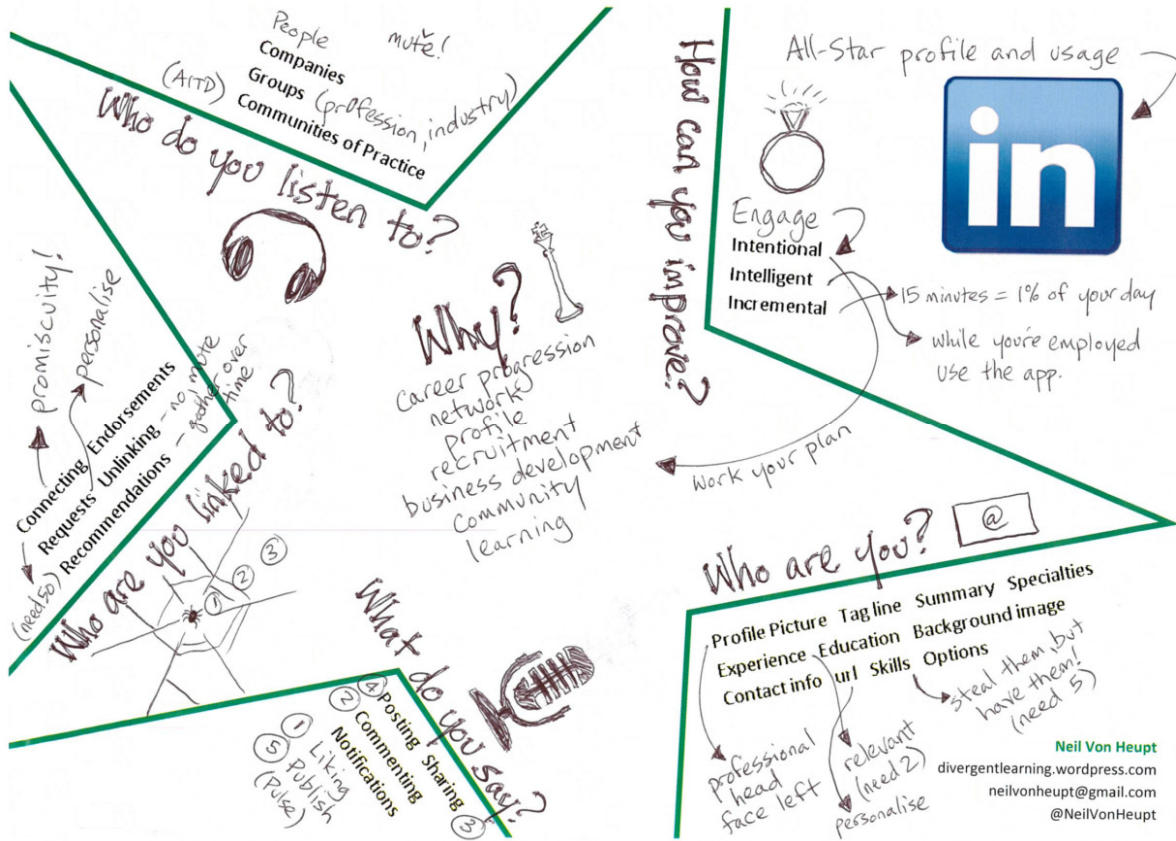 People
mute!
Companies
(AITD) Groups (profession, industry)
Communities of Practice
Who do you listen to?
promiscuity!
personalise
Connecting Endorsements
Requests Unlinking - no, mute
Recommendations - gather over
time
(need 50)
Who are you linked to?
1
2
3
Why?
career progression
network
profile
recruitment
business development
community
learning
What do you say?
4 Posting Sharing 3
2 Commenting
Notifications
1 Liking
5 Publish
(Pulse)
How can you improve?
All-Star profile and usage
in
Engage
Intentional
Intelligent
Incremental
15 minutes = 1% of your day
while you're employed
use the app.
work your plan
Who are you?
@
Profile Picture Tag line Summary Specialties
Experience Education Background image
Contact info url Skills Options
steal them, but
have them!
(need 5)
professional
head
face left
relevant
(need 2)
personalise
Neil Von Heupt
divergentlearning.wordpress.com
neilvonheupt@gmail.com
@NeilVonHeupt